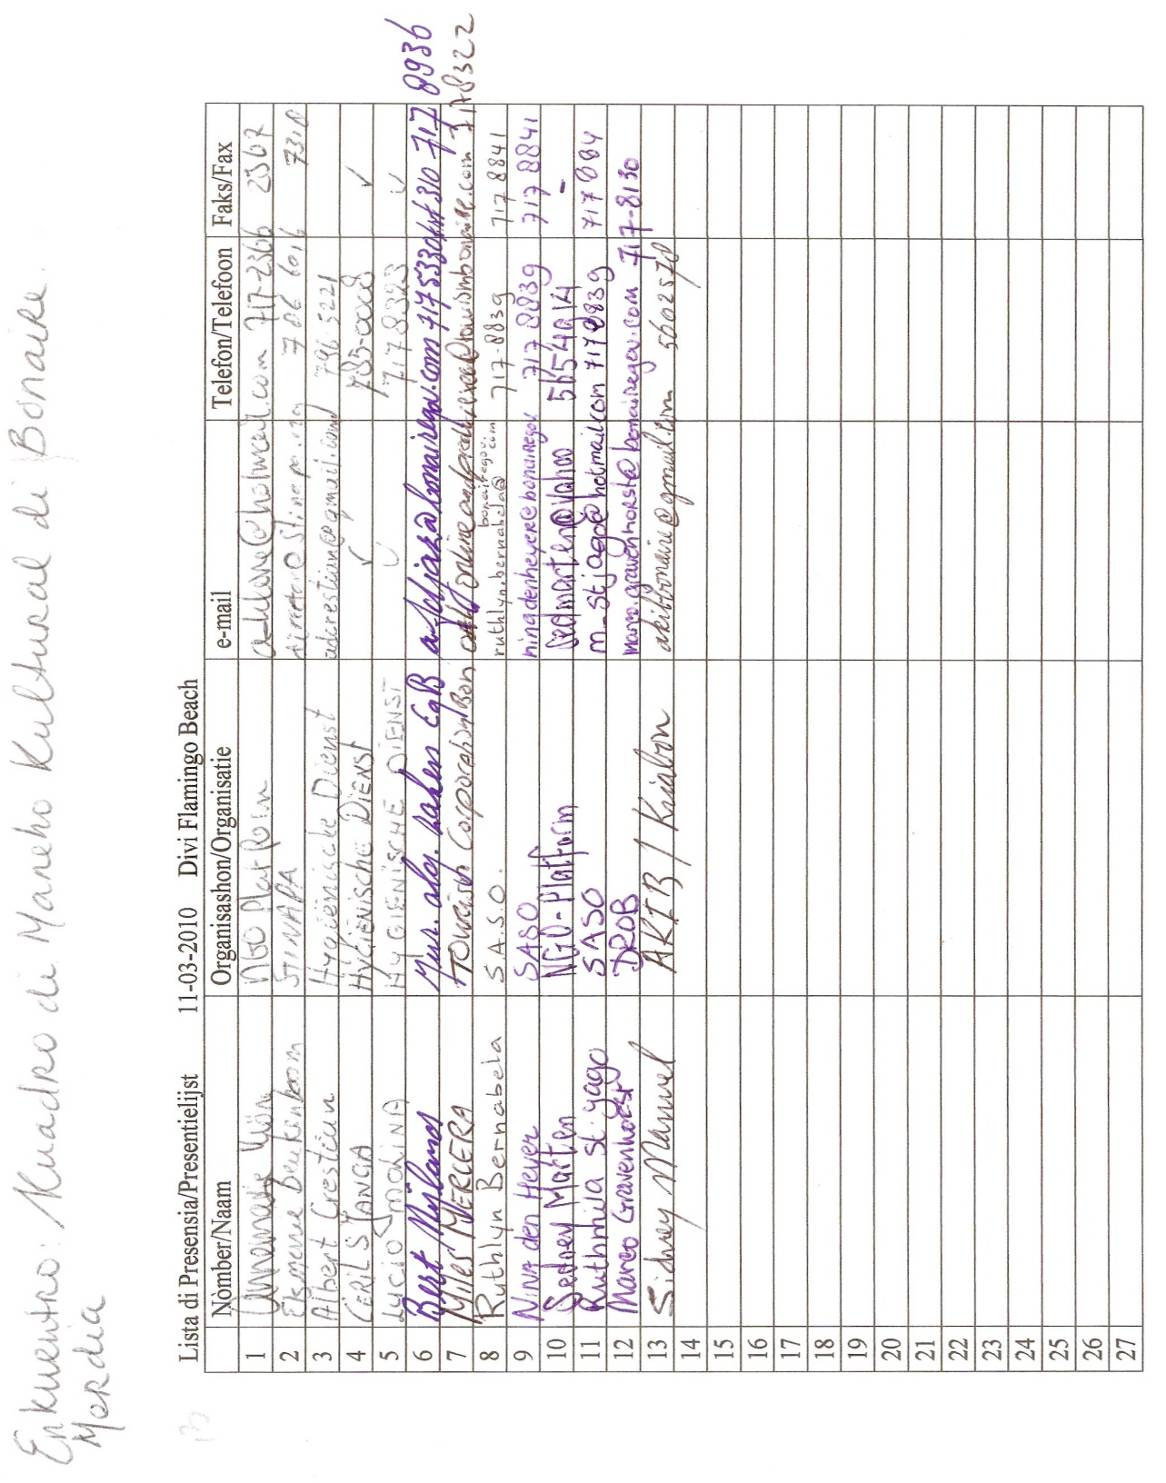 Enkuentro: Kuadro di Maneho Kultural di Bonaire.
Mordia
Lista di Presensia/Presentielijst 11-03-2010 Divi Flamingo Beach
Nòmber/Naam Organisashon/Organisatie e-mail Telefon/Telefoon Faks/Fax
1 NGO Platform 717-2366 2367
2 STINAPA 786 6016 7318
3 Albert Crestian Hygiënische Dienst adcrestian@gmail.com 796 5221
4 CERILS JANGA HYGIËNISCHE DIENST ✓ 785-0008 ✓
5 LUCIO HYGIENISCHE DIENST 717 8393
6 Bert Nijland Jur. alg. zaken EGB 717 8936
7 Miles MERCERA Tourism Corporation Bon 7178322
8 Ruthlyn Bernabela S.A.S.O. ruthlyn.bernabela@bonairegov.com 717-8839 717 8841
9 Nina den Heyer SASO ninadenheyer@bonairegov 717 8839 717 8841
10 Sedney Marten NGO-Platform Sedmarten@Yahoo 5654914 -
11 Ruthmila St. Jago SASO m-stjago@hotmail.com 7178839 717884
12 Marco Gravenhorst DROB marco.gravenhorst@bonairegov.com 717-8130
13 Sidney Manuel AKIB / Kriabon akibbonaire@gmail.com 5602570
14
15
16
17
18
19
20
21
22
23
24
25
26
27